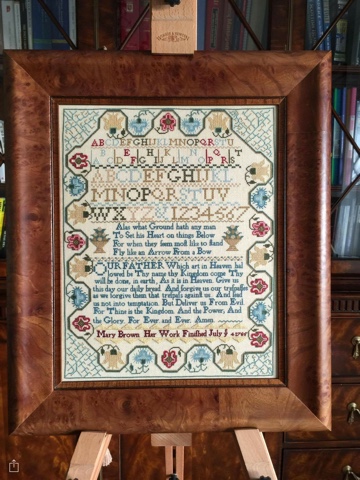 ABCDEFGHIJKLMNOPQRSTU
ABCDEFGHIJKL
MNOPQRSTUV
WXYZ&1234567
Alas what Ground hath any man
To Set his Heart on things Below
For when they ſeem moſt like to ſtand
Fly like an Arrow From a Bow
OUR FATHER Which art in Heaven hal
lowed be Thy name thy Kingdom come Thy
will be done, in earth, As it is in Heaven. Give us
this day our daily bread. And forgive us our treſpaſſes
as we forgive them that treſpaſs againſt us. And lead
us not into temptation. But Deliver us From Evil
For Thine is the Kingdom. And the Power, And
the Glory. For Ever. and Ever. Amen
Mary Brown Her Work Finiſhed July